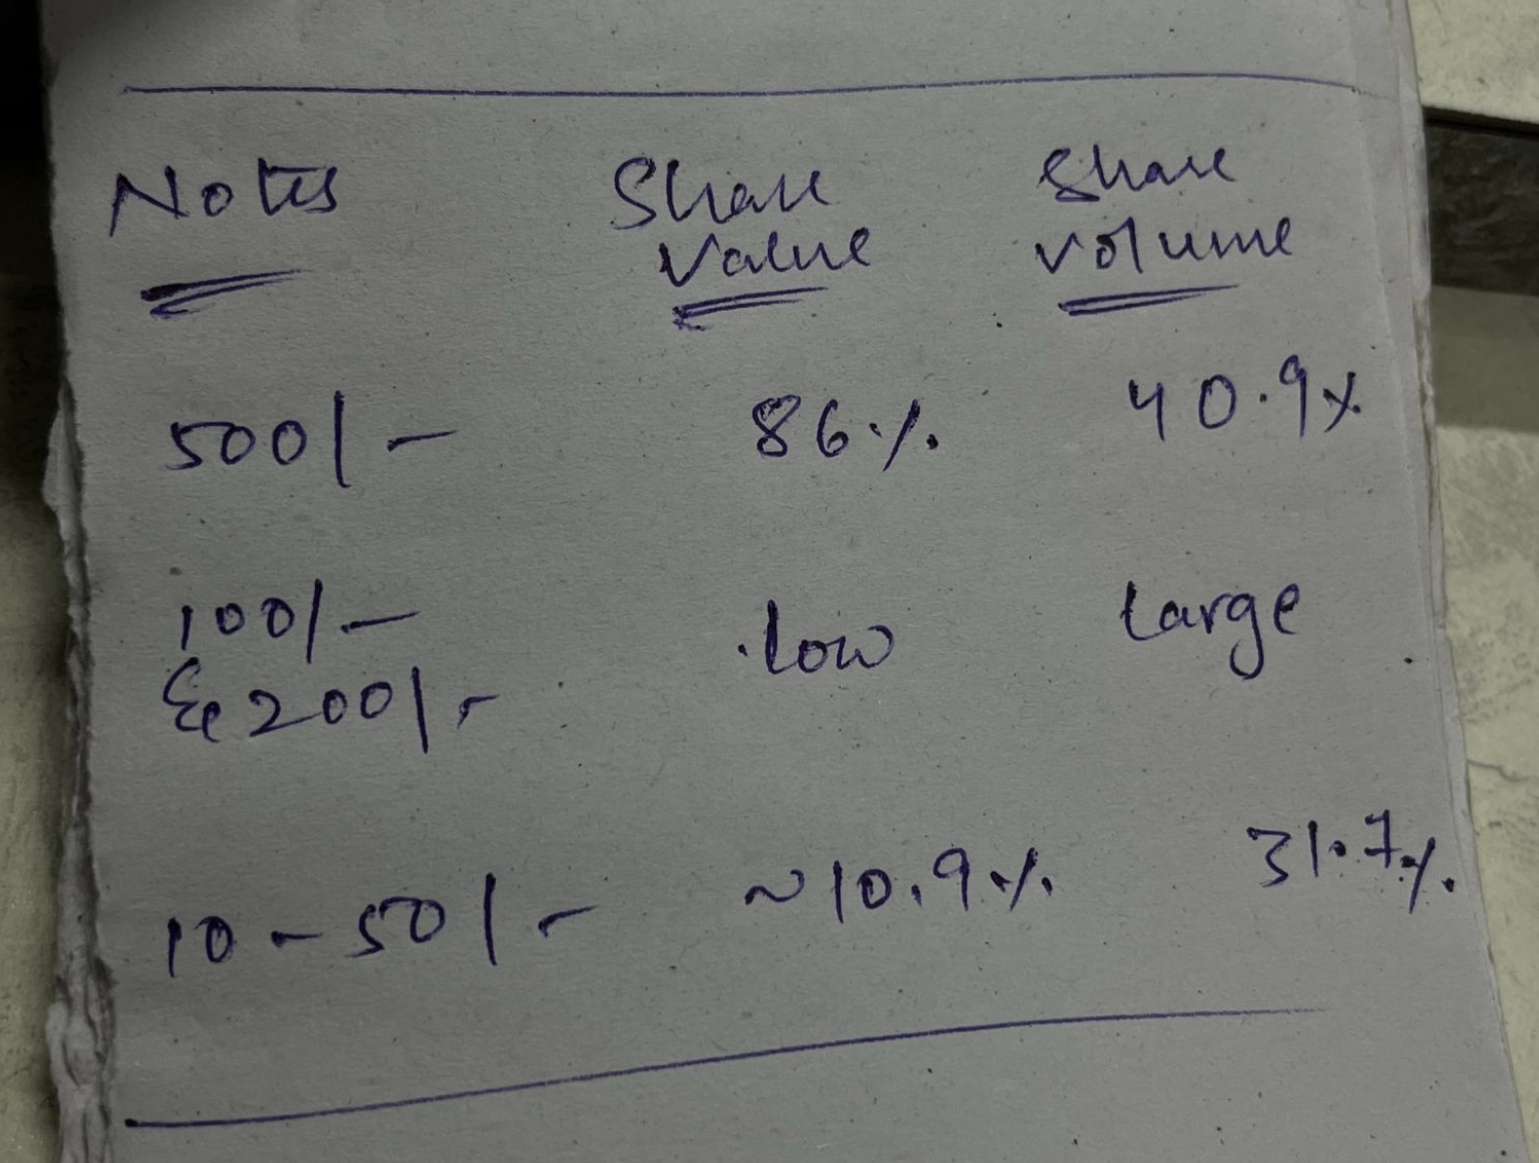 Notes Share Share
Value volume
500/- 86% 40.9%
100/- low large
& 200/-
10-50/- ~10.9% 31.7%